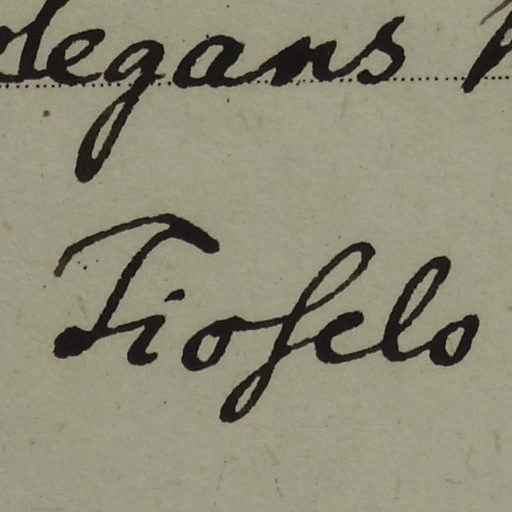 elegans
Tiofelo